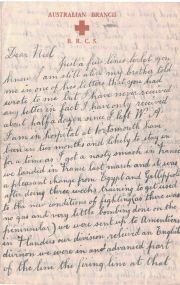 AUSTRALIAN BRANCH
B. R. C. S.
Dear Niel
Just a few lines to let you
know I am still alive my brother told
me in one of his letters that you had
wrote to me but I have never received
any letter in fact I have only received
about half a dozen since I left W. A.
I am in hospital at Portsmouth have
been in two months and likely to stop in
for a time as I got a nasty smash in France
we landed in France last march and it was
a pleasant change from Egypt and Gallipoli
after doing three weeks training to get used
to the new conditions of fighting (as there was
no gas and very little bombing done on the
peninsular) we were sent up to Armentiers
in Flanders our division relieved an English
division we were in an advanced part
of the line the firing line at that